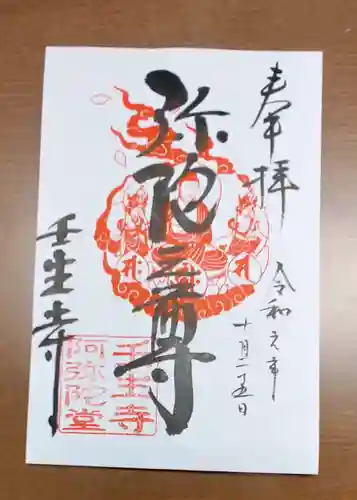 奉拝
令和元年
十月二十五日
弥陀三尊
壬生寺
壬生寺
阿弥陀堂